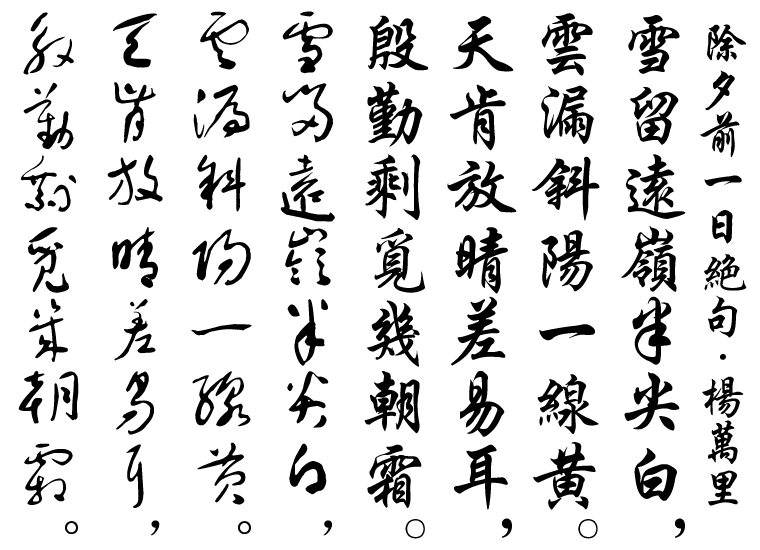 除夕前一日絕句·楊萬里
雪留遠嶺半尖白，
雲漏斜陽一線黃。
天肯放晴差易耳，
殷勤剩覓幾朝霜。
雪留遠嶺半尖白，
雲漏斜陽一線黃。
天肯放晴差易耳，
殷勤剩覓幾朝霜。